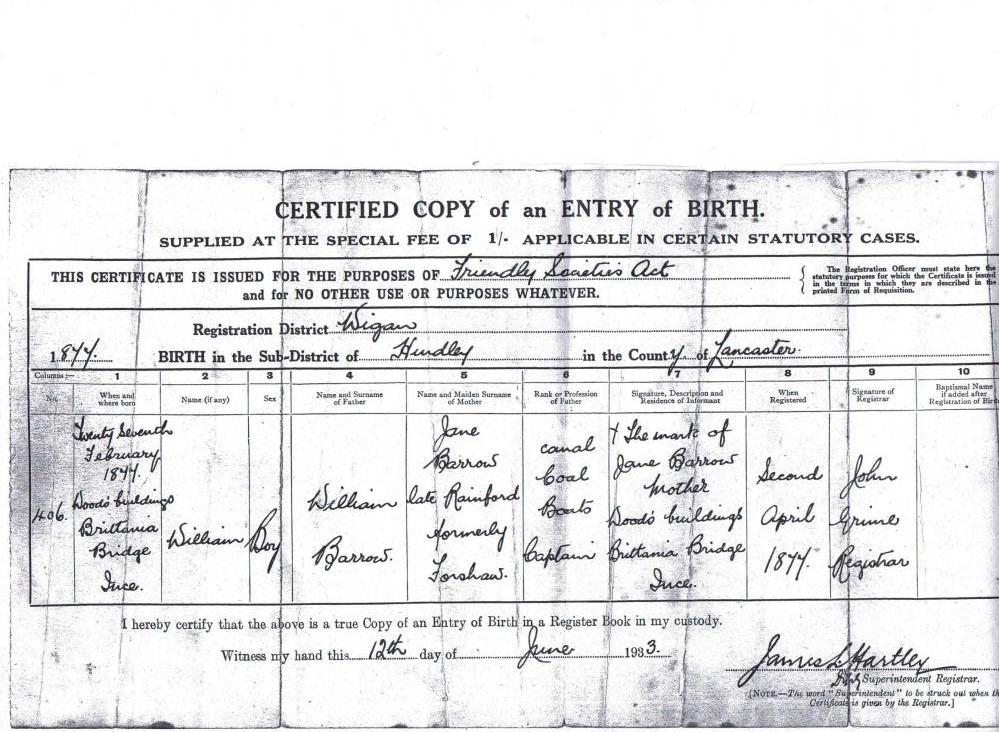 CERTIFIED COPY of an ENTRY of BIRTH.
SUPPLIED AT THE SPECIAL FEE OF 1/- APPLICABLE IN CERTAIN STATUTORY CASES.
THIS CERTIFICATE IS ISSUED FOR THE PURPOSES OF Friendly Societies Act
and for NO OTHER USE OR PURPOSES WHATEVER.
The Registration Officer must state here the
statutory purposes for which the Certificate is issued
in the terms in which they are described in the
printed Form of Requisition.
Registration District Wigan
1877. BIRTH in the Sub-District of Hindley in the County of Lancaster.
Columns:— 1 2 3 4 5 6 7 8 9 10
No. When and where born Name (if any) Sex Name and Surname of Father Name and Maiden Surname of Mother Rank or Profession of Father Signature, Description and Residence of Informant When Registered Signature of Registrar Baptismal Name if added after Registration of Birth
406.
Twenty Seventh
February
1877.
Wood's buildings
Brittania
Bridge
Ince.
William
Boy
William
Barrow.
Jane
Barrow
late Rainford
formerly
Forshaw.
canal
Coal
Boats
Captain
+ The mark of
Jane Barrow
Mother
Wood's buildings
Brittania Bridge
Ince.
Second
April
1877.
John
Grime
Registrar
I hereby certify that the above is a true Copy of an Entry of Birth in a Register Book in my custody.
Witness my hand this 12th day of June 1933.
James L Hartley
Dpty Superintendent Registrar.
[NOTE.—The word "Superintendent" to be struck out when th
Certificate is given by the Registrar.]